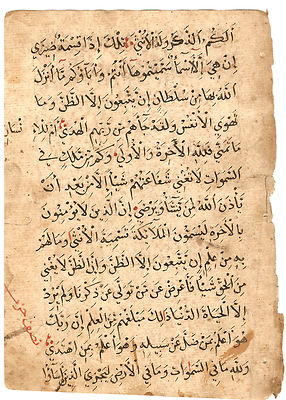 ألكم الذكر وله الأنثى تلك إذا قسمة ضيزى
إن هي إلا أسماء سميتموها أنتم وآباؤكم ما أنزل
الله بها من سلطان إن يتبعون إلا الظن وما
تهوى الأنفس ولقد جاءهم من ربهم الهدى أم للا
نسان
ما تمنى فلله الآخرة والأولى وكم من ملك في
السموات لا تغني شفاعتهم شيئا إلا من بعد أن
يأذن الله لمن يشاء ويرضى إن الذين لا يؤمنون
بالآخرة ليسمون الملائكة تسمية الأنثى وما لهم
به من علم إن يتبعون إلا الظن وإن الظن لا يغني
من الحق شيئا فأعرض عن من تولى عن ذكرنا ولم يرد
إلا الحياة الدنيا ذلك مبلغهم من العلم إن ربك
هو أعلم بمن ضل عن سبيله وهو أعلم بمن اهتدى
ولله ما في السموات وما في الأرض ليجزي الذين أساؤا
نصف حزب